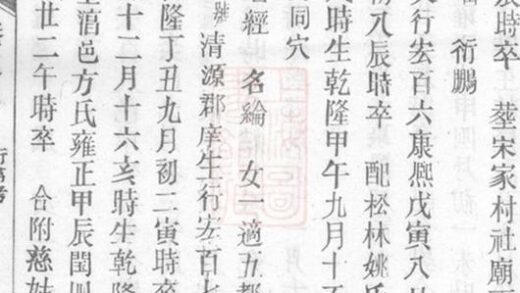 辰時卒 葬宋家村社廟
鵬
行宏百六康熈戊寅八
初八辰時卒 配松林姚氏
時生乾隆甲午九月十
同穴
名經 名綸 女一適五都
號清源郡庠生行宏百七
隆丁丑九月初二寅時卒
十二月十六亥時生乾隆
邑方氏雍正甲辰閏四
廿二午時卒 合附慈
行第考